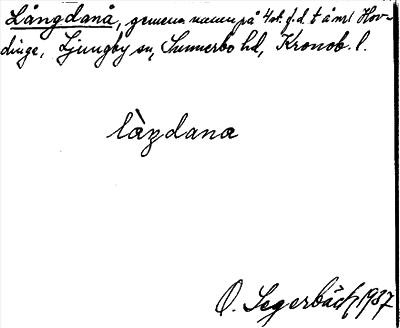 Långdanå, gemens. namn på 4 st. f.d. t å m/ Hov-
dinge, Ljungby sn, Sunnerbo hd, Kronob. l.
làŋdana
O. Segerbäck 1937